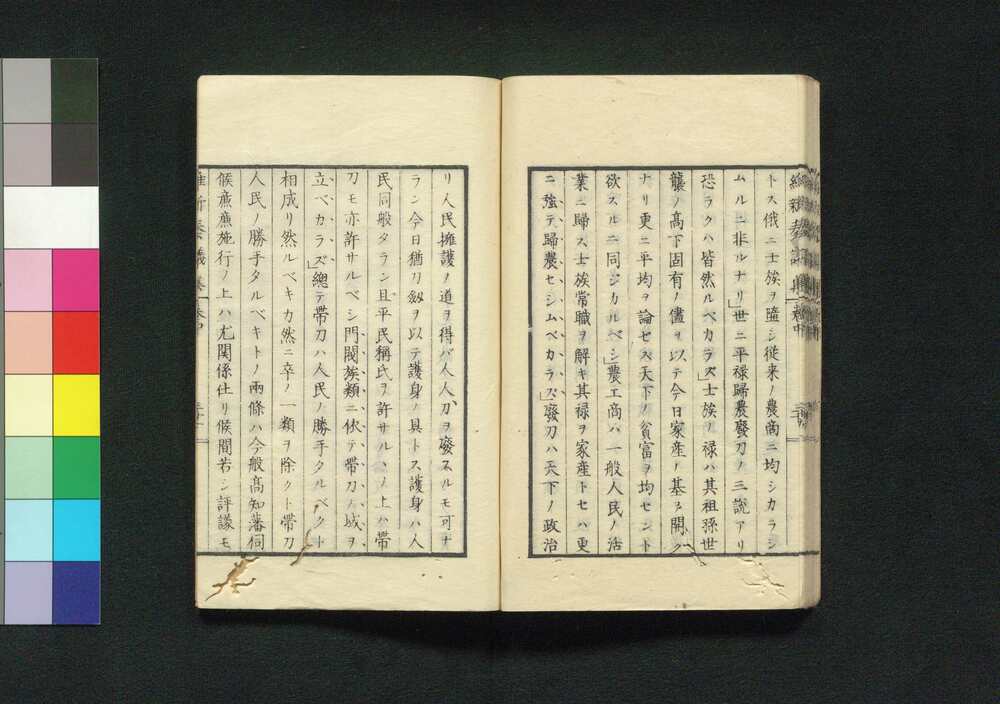 トス俄ニ士族ヲ
シ従来ノ農商ニ均シカラシ
ムルニ非ルナリ」世ニ平禄歸農廢刀ノ三説アリ
恐ラクハ皆然ルベカラズ」士族ノ禄ハ其祖孫世
襲ノ高下固有ノ儘ヲ以テ今日家産ノ基ヲ開ク
ナリ更ニ平均ヲ論セス天下ノ貧富ヲ均センド
欲スルニ同ジカルベシ」農工商ハ一般人民ノ活
業ニ歸ス士族常職ヲ解キ其禄ヲ家産トセハ更
ニ強テ歸農セシムベカラズ」廢刀ハ天下ノ政治
リ人民擁護ノ道ヲ得バ人人刀ヲ廢スルモ可ナ
ラン今日猶刀劔ヲ以テ護身ノ具トス護身ハ人
民同般タラン且平民稱氏ヲ許サルヽノ上ハ帶
刀モ亦許サルベシ門閥族類ニ依テ帶刀ノ域ヲ
立ベカラズ」總テ帶刀ハ人民ノ勝手タルベクト
相成リ然ルベキカ然ニ卒ノ一類ヲ除クト帶刀
人民ノ勝手タルベキトノ兩條ハ今般髙知藩伺
候廉廉施行ノ上ハ尤関係仕リ候間若シ評議モ
維新奏議集 巻中